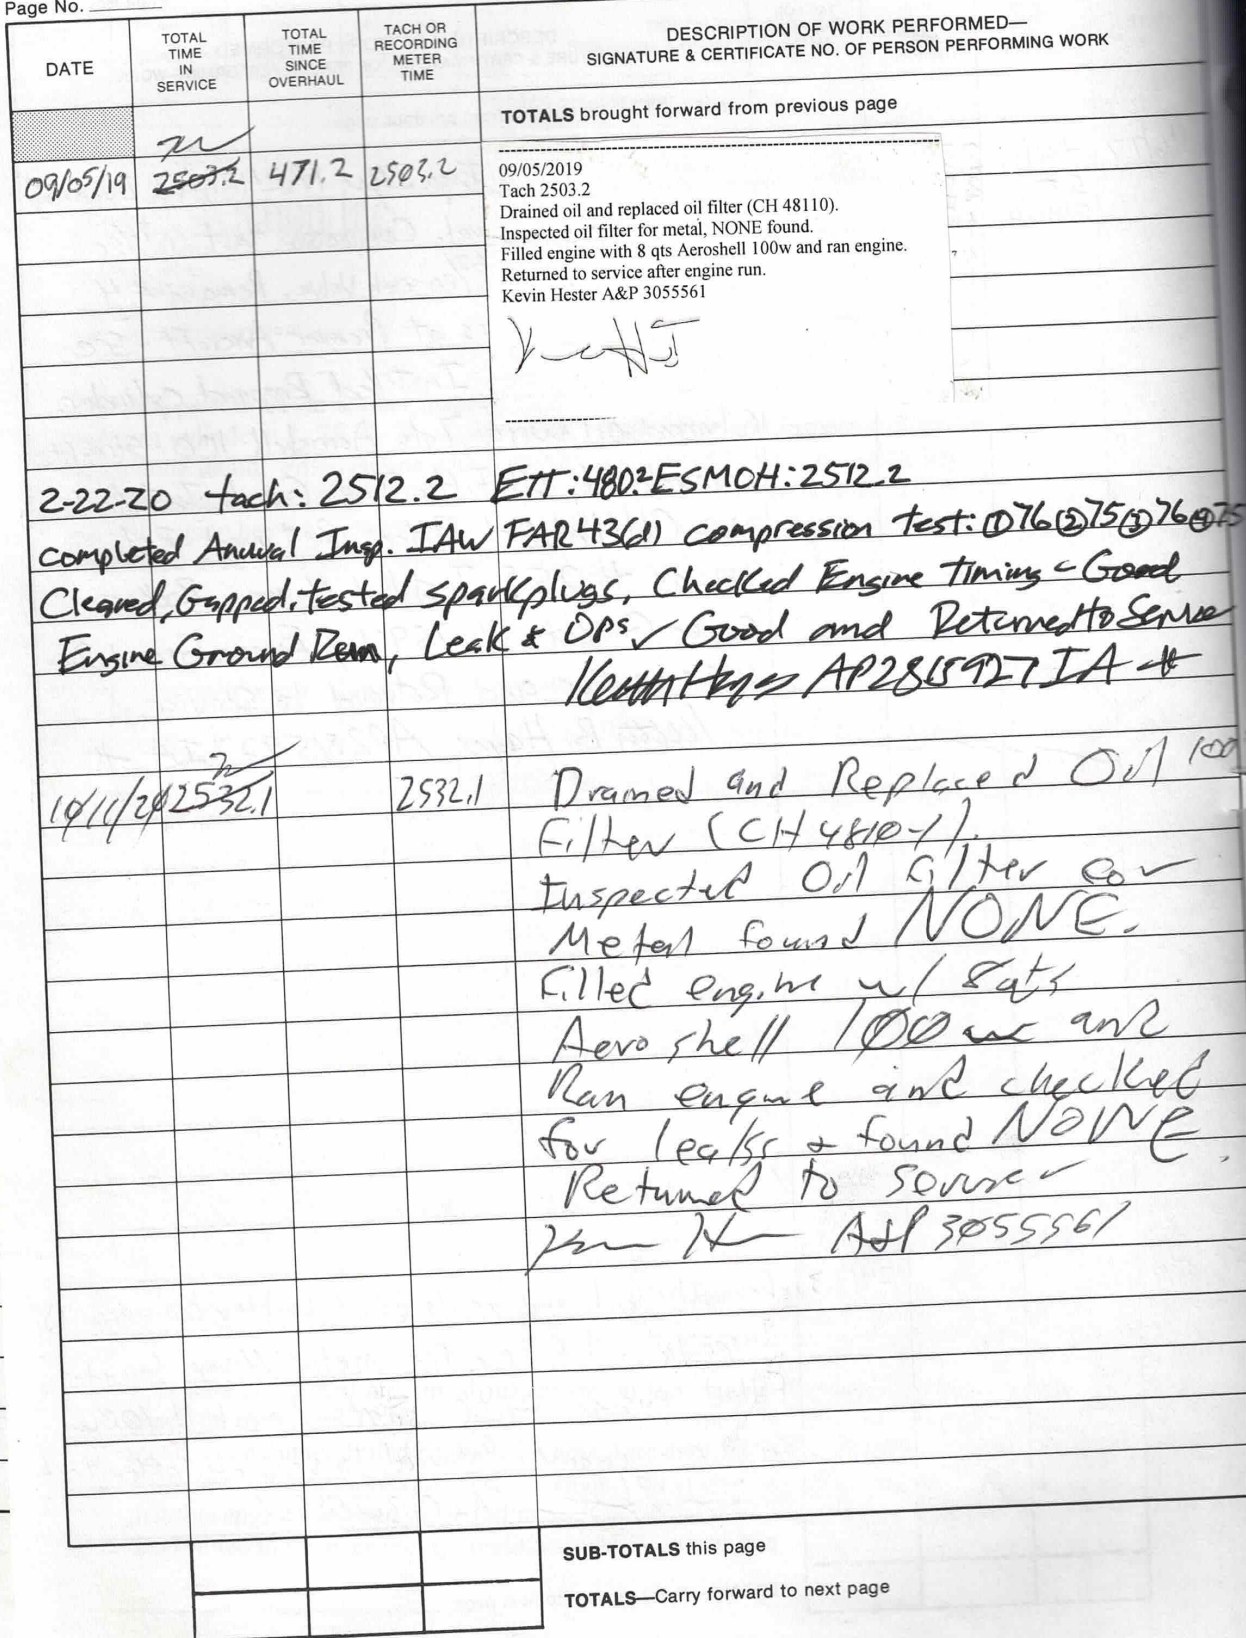 Page No.
DATE
TOTAL
TIME
IN
SERVICE
TOTAL
TIME
SINCE
OVERHAUL
TACH OR
RECORDING
METER
TIME
DESCRIPTION OF WORK PERFORMED—
SIGNATURE & CERTIFICATE NO. OF PERSON PERFORMING WORK
TOTALS brought forward from previous page
09/05/19 2503.2 471.2 2503.2
09/05/2019
Tach 2503.2
Drained oil and replaced oil filter (CH 48110).
Inspected oil filter for metal, NONE found.
Filled engine with 8 qts Aeroshell 100w and ran engine.
Returned to service after engine run.
Kevin Hester A&P 3055561
2-22-20 tach: 2512.2 ETT: 480.2 ESMOH: 2512.2
completed Annual Insp. IAW FAR 43(d) compression test: ①76 ②75 ③76 ④75
Cleaned, Gapped, tested sparkplugs, Checked Engine Timing - Good
Engine Ground Run, Leak & Ops ✓ Good and Returned to Service
AP2815927 IA
10/11/20 2532.1 2532.1 Drained and Replaced Oil
Filter (CH 48110-1).
Inspected Oil Filter for
Metal found NONE.
Filled engine w/ 8 qts
Aeroshell 100w and
Ran engine and checked
for leaks & found NONE.
Returned to service
A&P 3055561
SUB-TOTALS this page
TOTALS—Carry forward to next page